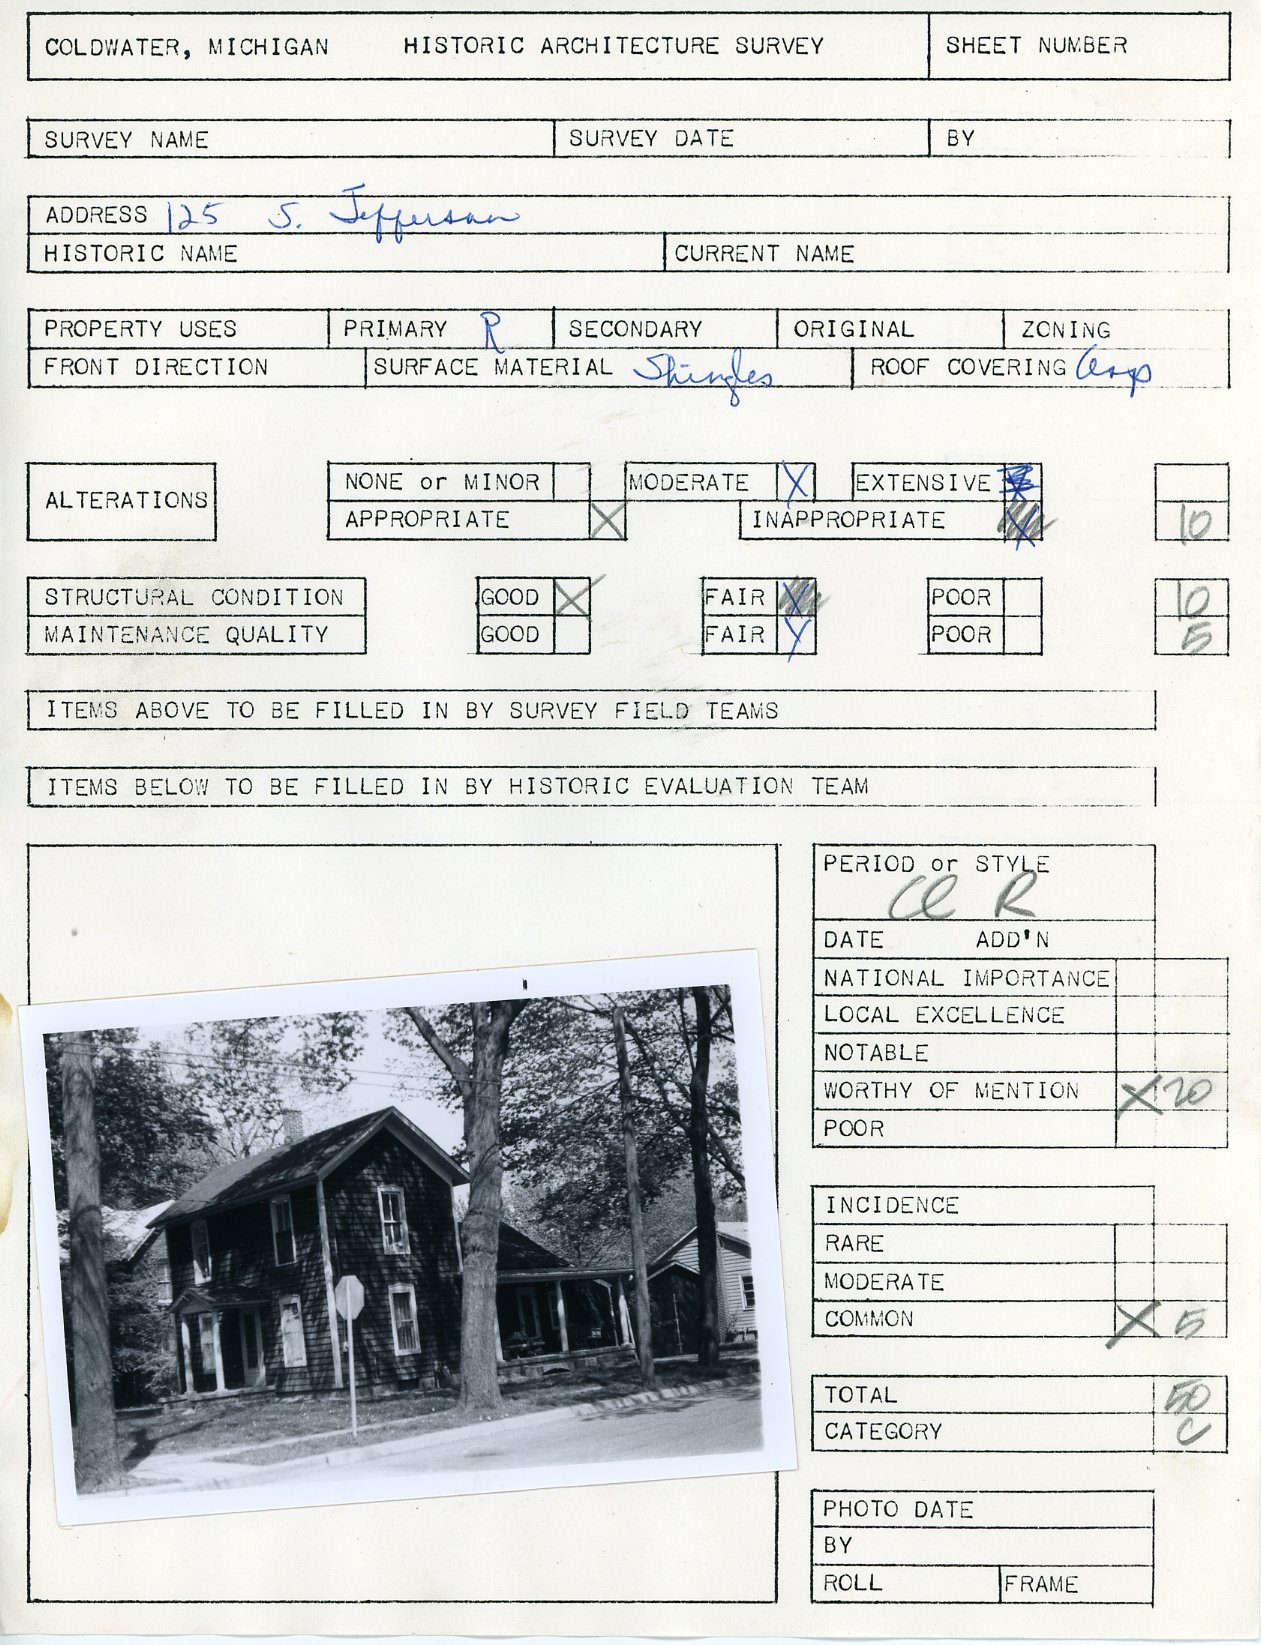 COLDWATER, MICHIGAN HISTORIC ARCHITECTURE SURVEY SHEET NUMBER
SURVEY NAME SURVEY DATE BY
ADDRESS 125 S. Jefferson
HISTORIC NAME CURRENT NAME
PROPERTY USES PRIMARY R SECONDARY ORIGINAL ZONING
FRONT DIRECTION SURFACE MATERIAL Shingles ROOF COVERING Asp
ALTERATIONS
NONE or MINOR MODERATE X EXTENSIVE X
APPROPRIATE X INAPPROPRIATE X 10
STRUCTURAL CONDITION GOOD X FAIR X POOR 10
MAINTENANCE QUALITY GOOD FAIR X POOR 5
ITEMS ABOVE TO BE FILLED IN BY SURVEY FIELD TEAMS
ITEMS BELOW TO BE FILLED IN BY HISTORIC EVALUATION TEAM
PERIOD or STYLE
R
DATE ADD'N
NATIONAL IMPORTANCE
LOCAL EXCELLENCE
NOTABLE
WORTHY OF MENTION X 20
POOR
INCIDENCE
RARE
MODERATE
COMMON X 5
TOTAL 50
CATEGORY C
PHOTO DATE
BY
ROLL FRAME